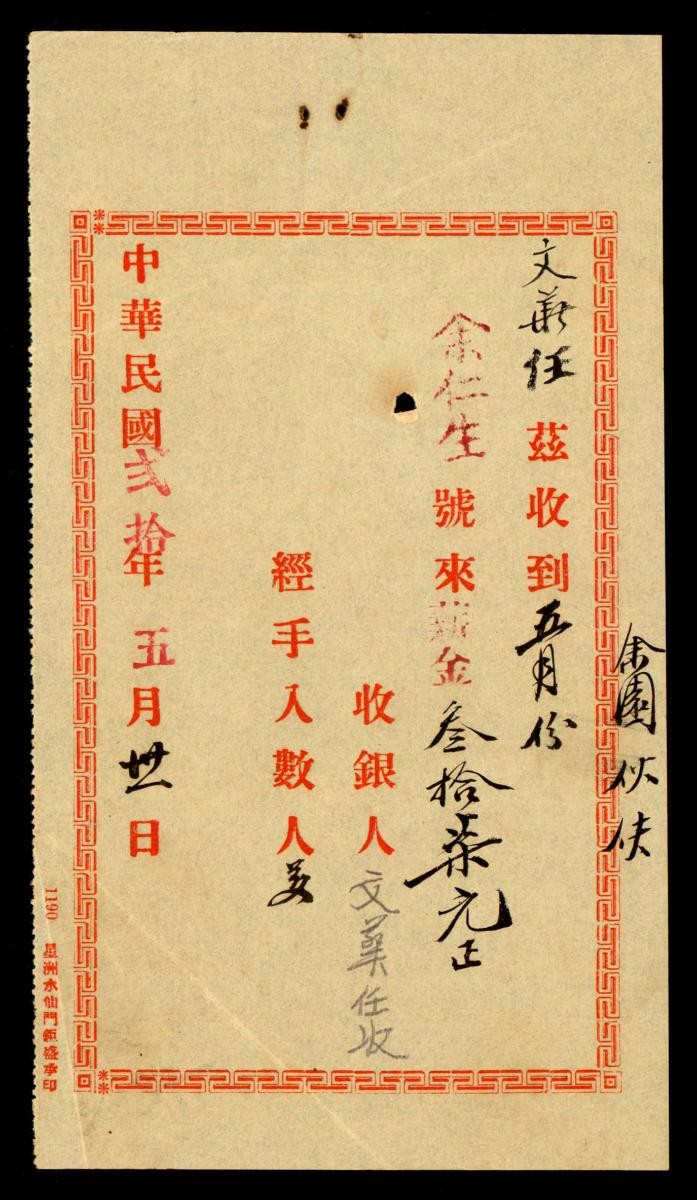 余園伙伕
文葯任茲收到五月份
余仁生號來薪金叁拾柒元正
收銀人文藥任收
經手入數人
中華民國弍拾年五月卅一日
1190 星洲水仙門鉅盛承印